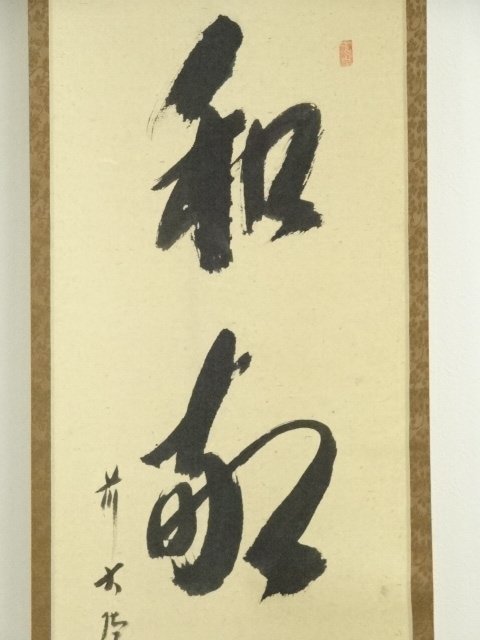 和敬
前大徳